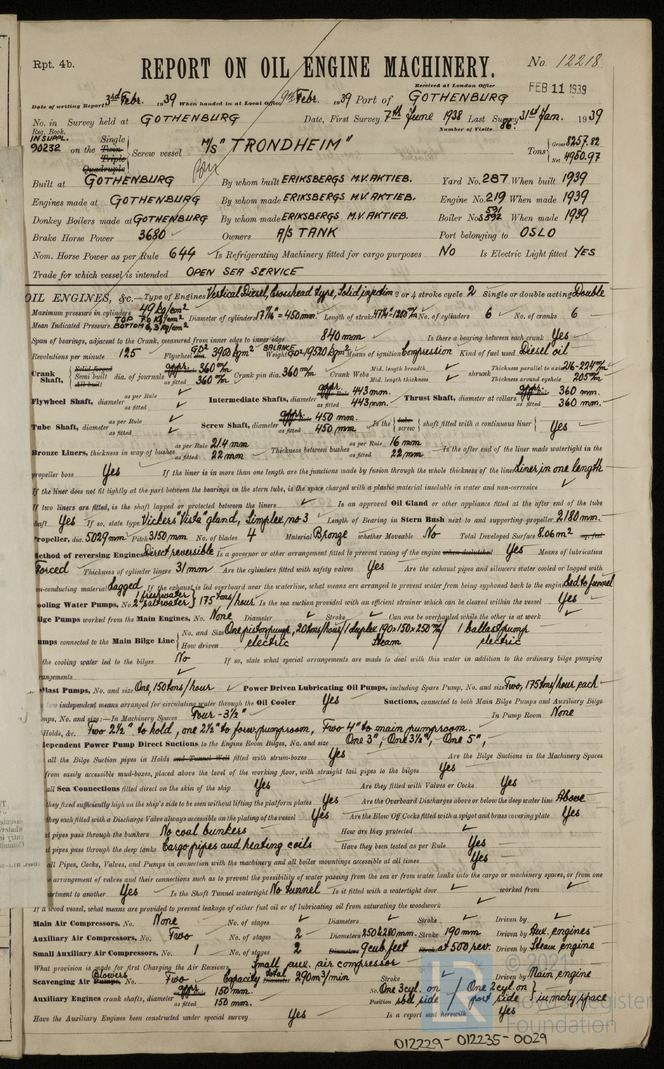 Rpt. 4b.
REPORT ON OIL ENGINE MACHINERY.
No. 12218
Received at London Office
FEB 11 1939
Date of writing Report 3rd Febr. 1939 When handed in at Local Office 9th Febr. 1939 Port of GOTHENBURG
No. in Survey held at GOTHENBURG Date, First Survey 7th June 1938 Last Survey 31st Jan. 1939
Reg. Book. Number of Visits 86.
IN SUPPL. 90232 on the Single Twin Triple Quadruple Screw vessel M/S "TRONDHEIM" Tons Gross 8257.82 Net 4950.97
Built at GOTHENBURG By whom built ERIKSBERGS M.V. AKTIEB. Yard No. 287 When built 1939
Engines made at GOTHENBURG By whom made ERIKSBERGS M.V. AKTIEB. Engine No. 219 When made 1939
Donkey Boilers made at GOTHENBURG By whom made ERIKSBERGS M.V. AKTIEB. Boiler Nos. 591 592 When made 1939
Brake Horse Power 3680 Owners A/S TANK Port belonging to OSLO
Nom. Horse Power as per Rule 644 Is Refrigerating Machinery fitted for cargo purposes NO Is Electric Light fitted YES
Trade for which vessel is intended OPEN SEA SERVICE
OIL ENGINES, &c.—Type of Engines Vertical Diesel, Crosshead type, Solid injection 2 or 4 stroke cycle 2 Single or double acting Double
Maximum pressure in cylinders 49 kg/cm² Diameter of cylinders 17 11/16" = 450 mm. Length of stroke 47 1/4" = 1200 m/m No. of cylinders 6 No. of cranks 6
Mean Indicated Pressure TOP 7.6 kg/cm² BOTTOM 6,3 kg/cm²
Span of bearings, adjacent to the Crank, measured from inner edge to inner edge 840 mm Is there a bearing between each crank Yes
Revolutions per minute 125 Flywheel GD² 3900 kgm² BALANCE Weight GD² 19520 kgm² Means of ignition Compression Kind of fuel used Diesel oil
Crank Shaft, Solid forged Semi built All built dia. of journals appr. 360 m/m as fitted 360 m/m Crank pin dia. 360 m/m Crank Webs Mid. length breadth Mid. length thickness shrunk Thickness parallel to axis 216-224 m/m Thickness around eyehole 205 m/m
Flywheel Shaft, diameter as per Rule as fitted Intermediate Shafts, diameter appr. 443 mm. as fitted 443 mm. Thrust Shaft, diameter at collars appr. 360 mm as fitted 360 mm.
Tube Shaft, diameter as per Rule as fitted Screw Shaft, diameter appr. 450 mm. as fitted 450 mm. Is the tube screw shaft fitted with a continuous liner Yes
Bronze Liners, thickness in way of bushes as per Rule 21.4 mm as fitted 22 mm Thickness between bushes as per Rule 16 mm as fitted 22 mm. Is the after end of the liner made watertight in the
propeller boss Yes If the liner is in more than one length are the junctions made by fusion through the whole thickness of the liner Liner in one length
If the liner does not fit tightly at the part between the bearings in the stern tube, is the space charged with a plastic material insoluble in water and non-corrosive
If two liners are fitted, is the shaft lapped or protected between the liners Is an approved Oil Gland or other appliance fitted at the after end of the tube
shaft Yes If so, state type Vickers "Vista" gland, Simplex no 3 Length of Bearing in Stern Bush next to and supporting propeller 2180 mm.
Propeller, dia. 5029 mm Pitch 3150 mm No. of blades 4 Material Bronze whether Moveable No Total Developed Surface 8.06 m² sq. feet
Method of reversing Engines Direct reversible Is a governor or other arrangement fitted to prevent racing of the engine when declutched Yes Means of lubrication
Forced Thickness of cylinder liners 31 mm Are the cylinders fitted with safety valves Yes Are the exhaust pipes and silencers water cooled or lagged with
non-conducting material Lagged If the exhaust is led overboard near the waterline, what means are arranged to prevent water from being syphoned back to the engine Led to funnel
Cooling Water Pumps, No. 2 freshwater 2 saltwater } 175 tons/hour Is the sea suction provided with an efficient strainer which can be cleared within the vessel Yes
Bilge Pumps worked from the Main Engines, No. None Diameter Stroke Can one be overhauled while the other is at work
Pumps connected to the Main Bilge Line { No. and Size One piston pump, 20 tons/hour / 1 duplex 190×150×250 m/m / 1 ballast pump
How driven electric steam electric
the cooling water led to the bilges No If so, state what special arrangements are made to deal with this water in addition to the ordinary bilge pumping
arrangements
Ballast Pumps, No. and size One, 150 tons/hour Power Driven Lubricating Oil Pumps, including Spare Pump, No. and size Two, 175 tons/hour each
two independent means arranged for circulating water through the Oil Cooler Yes Suctions, connected to both Main Bilge Pumps and Auxiliary Bilge
Pumps, No. and size:—In Machinery Spaces Four - 3½" In Pump Room None
Holds, &c. Two 2½" to hold, one 2½" to forw. pumproom, Two 4" to main pumproom.
Independent Power Pump Direct Suctions to the Engine Room Bilges, No. and size One 3", One 3½", One 5",
all the Bilge Suction pipes in Holds and Tunnel Well fitted with strum-boxes Yes Are the Bilge Suctions in the Machinery Spaces
from easily accessible mud-boxes, placed above the level of the working floor, with straight tail pipes to the bilges Yes
all Sea Connections fitted direct on the skin of the ship Yes Are they fitted with Valves or Cocks Yes
they fixed sufficiently high on the ship's side to be seen without lifting the platform plates Yes Are the Overboard Discharges above or below the deep water line Above
they each fitted with a Discharge Valve always accessible on the plating of the vessel Yes Are the Blow Off Cocks fitted with a spigot and brass covering plate Yes
pipes pass through the bunkers No coal bunkers How are they protected
pipes pass through the deep tanks Cargo pipes and heating coils Have they been tested as per Rule Yes
all Pipes, Cocks, Valves, and Pumps in connection with the machinery and all boiler mountings accessible at all times Yes
arrangement of valves and their connections such as to prevent the possibility of water passing from the sea or from water tanks into the cargo or machinery spaces, or from one
compartment to another Yes Is the Shaft Tunnel watertight No tunnel Is it fitted with a watertight door worked from
If a wood vessel, what means are provided to prevent leakage of either fuel oil or of lubricating oil from saturating the woodwork
Main Air Compressors, No. None No. of stages Diameters Stroke Driven by
Auxiliary Air Compressors, No. Two No. of stages 2 Diameters 250 & 280 mm. Stroke 190 mm Driven by Aux. engines
Small Auxiliary Air Compressors, No. 1 No. of stages 2 Diameters 9 cub. feet Stroke at 500 rev. Driven by Steam engine
What provision is made for first Charging the Air Receivers Small aux. air compressor
Scavenging Air Pumps, Blowers No. Two Capacity total Diameter 290 m³/min Stroke Driven by Main engine
Auxiliary Engines crank shafts, diameter appr. 150 mm. as fitted 150 mm. No. One 3 cyl. on / One 2 cyl on
Position stbd side / port side } in mchy space
Have the Auxiliary Engines been constructed under special survey Yes Is a report sent herewith Yes
© 2021
LR
Lloyd's Register
Foundation
012229-012235-0029